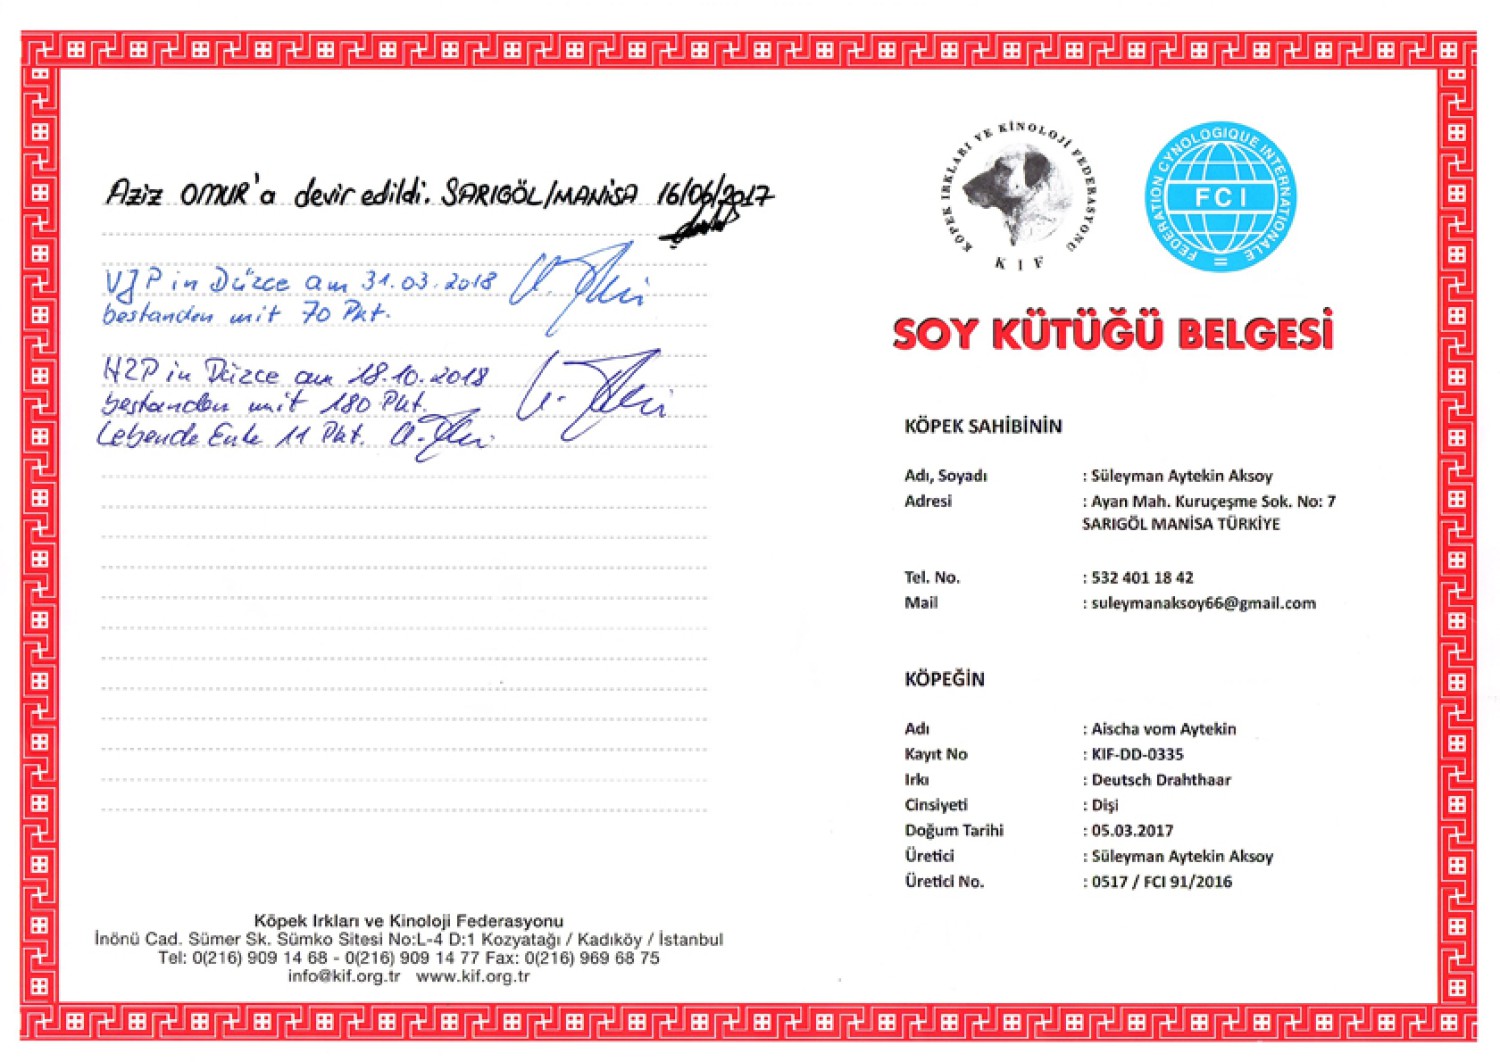 Aziz OMUR'a devir edildi. SARIGÖL/MANİSA 16/06/2017
VJP in Düzce am 31.03.2018
bestanden mit 70 Pkt.
HZP in Düzce am 18.10.2018
bestanden mit 180 Pkt.
Lebende Ente 11 Pkt.
Köpek Irkları ve Kinoloji Federasyonu
İnönü Cad. Sümer Sk. Sümko Sitesi No:L-4 D:1 Kozyatağı / Kadıköy / İstanbul
Tel: 0(216) 909 14 68 - 0(216) 909 14 77 Fax: 0(216) 969 68 75
info@kif.org.tr www.kif.org.tr
KÖPEK IRKLARI VE KİNOLOJİ FEDERASYONU
K I F
FEDERATION CYNOLOGIQUE INTERNATIONALE
FCI
SOY KÜTÜĞÜ BELGESİ
KÖPEK SAHİBİNİN
Adı, Soyadı : Süleyman Aytekin Aksoy
Adresi : Ayan Mah. Kuruçeşme Sok. No: 7
SARIGÖL MANİSA TÜRKİYE
Tel. No. : 532 401 18 42
Mail : suleymanaksoy66@gmail.com
KÖPEĞİN
Adı : Aischa vom Aytekin
Kayıt No : KIF-DD-0335
Irkı : Deutsch Drahthaar
Cinsiyeti : Dişi
Doğum Tarihi : 05.03.2017
Üretici : Süleyman Aytekin Aksoy
Üretici No. : 0517 / FCI 91/2016